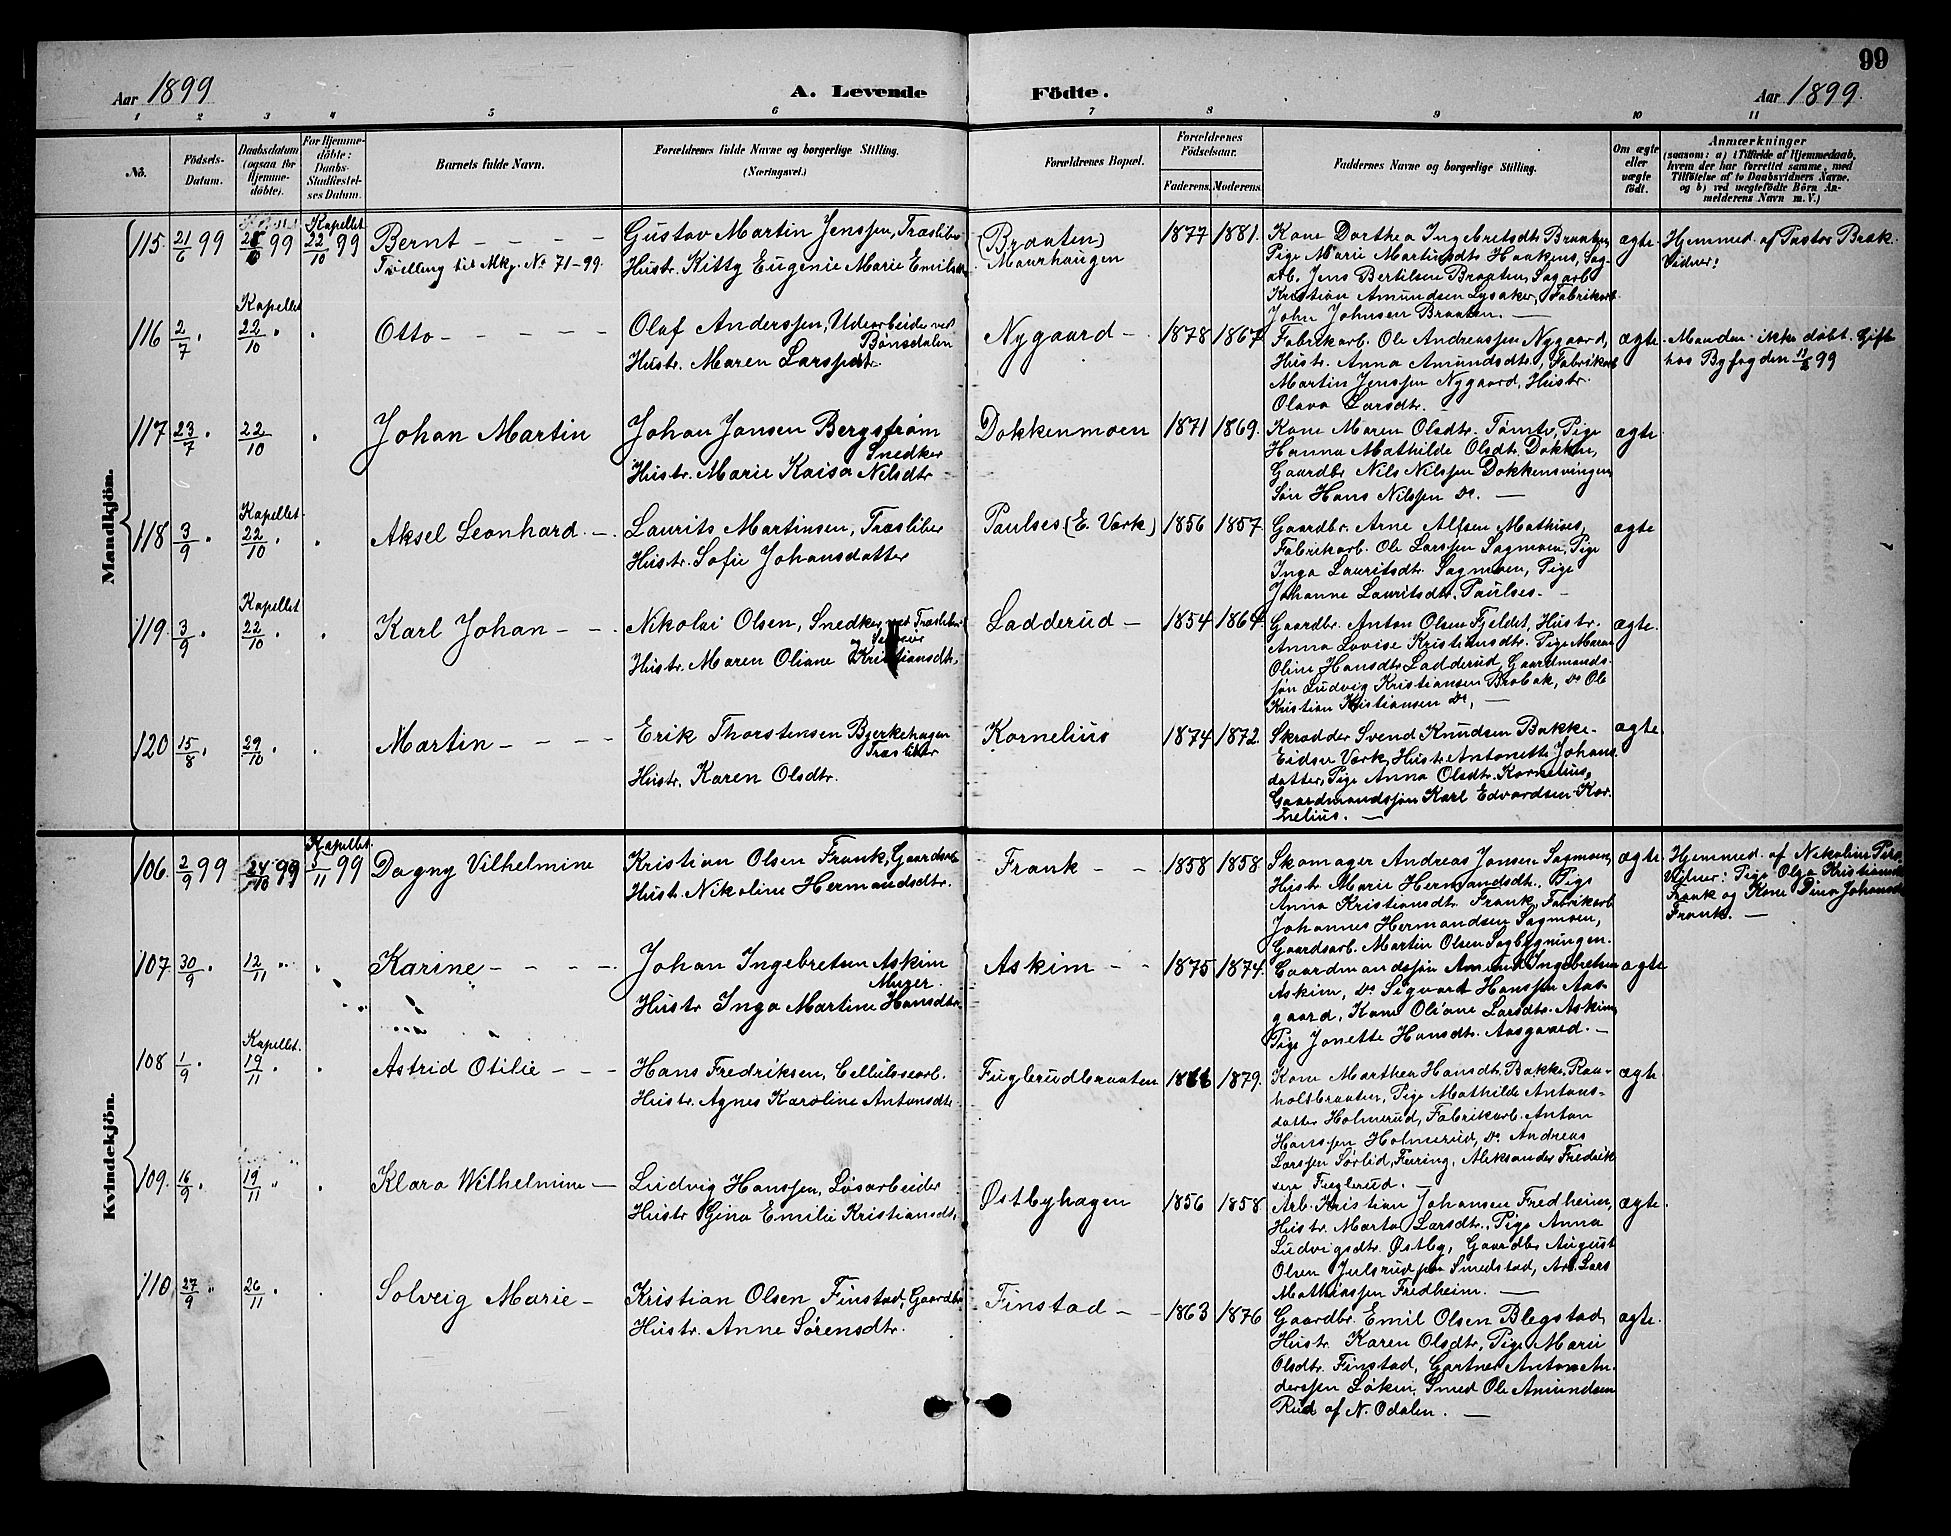 99
Aar 1899
A. Levende
Födte.
Aar 1899.
1 2 3 4 5 6 7 8 9 10 11
No.
Födsels-Datum.
Daabsdatum (ogsaa for Hjemme-döbte).
For Hjemme-döbte: Daabs-Stadfæstel-ses Datum.
Barnets fulde Navn.
Forældrenes fulde Navne og borgerlige Stilling. (Næringsvei.)
Forældrenes Bopæl.
Forældrenes Födselsaar.
Faderens. Moderens.
Faddernes Navne og borgerlige Stilling.
Om ægte eller uægte födt.
Anmærkninger
(saasom: a) i Tilfælde af Hjemmedaab,
hvem der har forrettet samme, med
Tilföielse af to Daabsvidners Navne,
og b) ved uægtefödte Börn An-
melderens Navn m. V.)
Mandkjön.
115. 21/6 99
Kapellet 22/10 99
Bernt - - - -
Tvilling til Mkj. No 71-99.
Gustav Martin Jenssen, Træsliber
Hustr. Kitty Eugenie Marie
(Braaten)
Maurhaugen
1877 1881.
Kone Dorthea Ingebretsdtr Braaten,
Pige Marie Martinsdtr Haakens, Sag-
arb. Jens Bertilsen Braaten, Sagarb.
Kristian Amundsen Lysaker, Fabrikarb.
John Johnsen Braaten. —
ægte.
Hjemmed. af Pastor Bræk.
Vidner:
116 2/7 "
Kapellet 22/10 "
Otto - - - - -
Olaf Anderssen, Udearbeider ved
Bönsdalen
Hustr. Maren Larsdtr.
Nygaard -
1878 1867
Fabrikarb. Ole Andreassen Nygaard,
Hustr. Anna Amundsdtr, Fabrikarb
Martin Jenssen Nygaard, Hustr.
Olava Larsdtr. -
ægte.
Manden ikke döbt. Gift
hos Byfogden 99
117 23/7 "
22/10
Johan Martin
Johan Jansen Bergström
Snedker
Hustr. Marie Kaisa Nilsdtr
Dokkenmoen
1871 1869.
Kone Maren Olsdtr. Tömte, Pige
Hanna Mathilde Olsdtr. Dokken,
Gaardbr Nils Nilssen Dokkensvingen,
Sön Hans Nilssen Do. —
ægte.
118 3/9 "
Kapellet 22/10 "
Aksel Leonhard. -
Laurits Martinsen, Træsliber
Hustr. Sofie Johansdatter
Paulses (E. Værk)
1856 1857.
Gaardbr. Arne Alfsen Mathises,
Fabrikarb. Ole Larssen Sagmoen, Pige
Inga Lauritsdtr. Sagmoen, Pige
Johanne Lauritsdtr. Paulses. -
ægte
119. 3/9 "
Kapellet 22/10 "
Karl Johan - -
Nikolai Olsen, Snedker ved Træsliberi
Hustr. Maren Oliane Kristiansdtr.
Ladderud -
1854 1864.
Gaardbr. Anton Olsen Fjeldet, Hustr.
Anna Lovise Kristiansdtr. Pige Maren
Oline Hansdtr Ladderud, Gaardmands-
sön Ludvig Kristiansen Brobak, Do Ole
Kristian Kristiansen Do, —
ægte.
120 15/8 "
29/10
Martin - - - -
Erik Thorstensen Bjerkehagen
Træsliber
Hustr. Karen Olsdtr.
Kornelius
1874 1872.
Skrædder Svend Knudsen Bakke-
Eidsv Værk, Hustr Antonette Johans-
datter, Pige Anna Olsdtr. Kornelius,
Gaardmandssön Karl Edvardsen Kor-
nelius. —
ægte.
Kvindekjön.
106. 2/9 99
24/10 99
Kapellet. 5/11 99
Dagny Vilhelmine
Kristian Olsen Frank, Gaardarb.
Hustr. Nikoline Hermansdtr.
Frank - -
1858 1858
Skomager Andreas Jansen Sagmoen,
Hustr. Marie Hermandsdtr. Pige
Anna Kristiansdtr Frank, Fabrikarb
Johannes Hermandsen Sagmoen,
Gaardsarb. Martin Olsen Sagbygningen.
ægte.
Hjemmed. af Nikolius
Vidner: Pige Olga Kristiansdtr
Frank og Kone Dina Johansdtr
Frank. —
107. 30/9 "
12/11 "
Karine - - - -
Johan Ingebretsen Askim
Murer.
Hustr Inga Martine Hansdtr.
Askim - -
1875 1874.
Gaardmandssön Amund Ingebretsen
Askim, Do Sigvart Hanssen Aas-
gaard, Kone Oliane Larsdtr. Askim,
Pige Jonette Hansdtr. Aasgaard. -
ægte
108 1/9 "
Kapellet. 19/11 "
Astrid Otilie - - -
Hans Fredriksen, Cellulosearb.
Hustr. Agnes Karoline Antonsdtr.
Fuglerudbraaten
1879.
Kone Marthea Hansdtr Bakke, Raa-
holtbraaten, Pige Mathilde Antons-
datter Holmerud, Fabrikarb. Anton
Hanssen Holmerud, Do Andreas
Larssen Sörlid, Feiring, Aleksander Fredrik
sen Fuglerud.
ægte.
109. 16/9 "
19/11 "
Klara Wilhelmine -
Ludvig Hanssen, Løsarbeider
Hustr Gina Emilie Kristiansdtr.
Østbyhagen
1856 1858.
Arb. Kristian Johansen Fredheim,
Hustr. Marta Larsdtr., Pige Anna
Ludvigsdtr. Østby, Gaardbr August
Olsen Julsrud paa Smedstad, Arb. Lars
Mathiassen Fredheim. —
ægte.
110. 27/9 "
26/11 "
Solveig Marie -
Kristian Olsen Finstad, Gaardbr.
Hustr. Anne Sörensdtr.
Finstad - -
1863 1876
Gaardbr. Emil Olsen Blegstad
Hustr. Karen Olsdtr, Pige Marie
Olsdtr. Finstad, Gartner Anton An-
derssen Löken, Smed Ole Amundsen
Rud af N. Odalen. —
ægte.